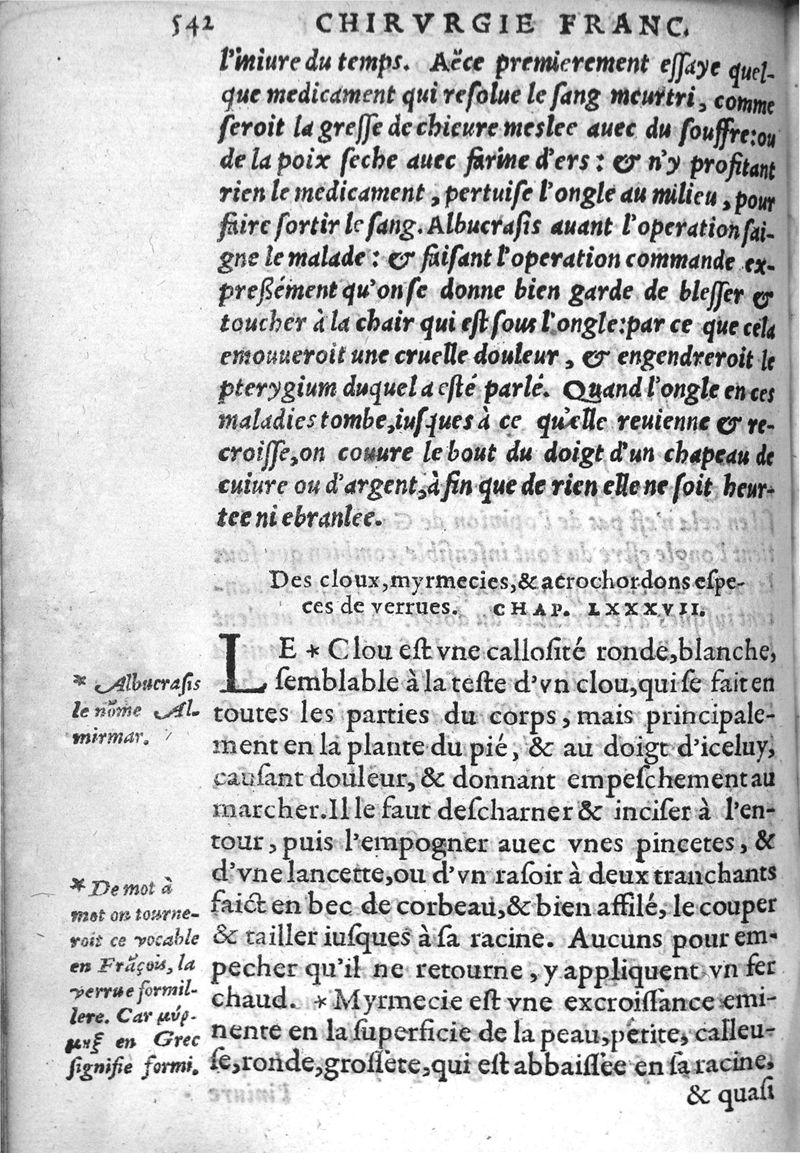 542 CHIRVRGIE FRANC.
l'iniure du temps. Aëce premierement eſſaye quel-
que medicament qui reſolue le ſang meurtri, comme
ſeroit la greſſe de chieure meslee auec du ſouffre: ou
de la poix ſeche auec farine d'ers: & n'y profitant
rien le medicament, pertuiſe l'ongle au milieu, pour
faire ſortir le ſang. Albucraſis auant l'operation ſai-
gne le malade: & faiſant l'operation commande ex-
preßément qu'on ſe donne bien garde de bleſſer &
toucher à la chair qui eſt ſous l'ongle: par ce que cela
emouueroit une cruelle douleur, & engendreroit le
pterygium duquel a eſté parlé. Quand l'ongle en ces
maladies tombe, iuſques à ce qu'elle reuienne & re-
croiſſe, on couure le bout du doigt d'un chapeau de
cuiure ou d'argent, à fin que de rien elle ne ſoit heur-
tee ni ebranlee.
Des cloux, myrmecies, & acrochordons eſpe-
ces de verrues. CHAP. LXXXVII.
LE * Clou eſt vne calloſité ronde, blanche,
ſemblable à la teſte d'vn clou, qui ſe fait en
toutes les parties du corps, mais principale-
ment en la plante du pié, & au doigt d'iceluy,
cauſant douleur, & donnant empeſchement au
marcher. Il le faut deſcharner & inciſer à l'en-
tour, puis l'empogner auec vnes pincetes, &
d'vne lancette, ou d'vn raſoir à deux tranchants
faict en bec de corbeau, & bien affilé, le couper
& tailler iuſques à ſa racine. Aucuns pour em-
pecher qu'il ne retourne, y appliquent vn fer
chaud. * Myrmecie eſt vne excroiſſance emi-
nente en la ſuperficie de la peau, petite, calleu-
ſe, ronde, groſſete, qui eſt abbaiſſee en ſa racine,
& quaſi
* Albucraſis
le nõme Al-
mirmar.
* De mot à
mot on tourne-
roit ce vocable
en Frãçois, la
verrue formil-
lere. Car μύρ-
μηξ en Grec
ſignifie formi.